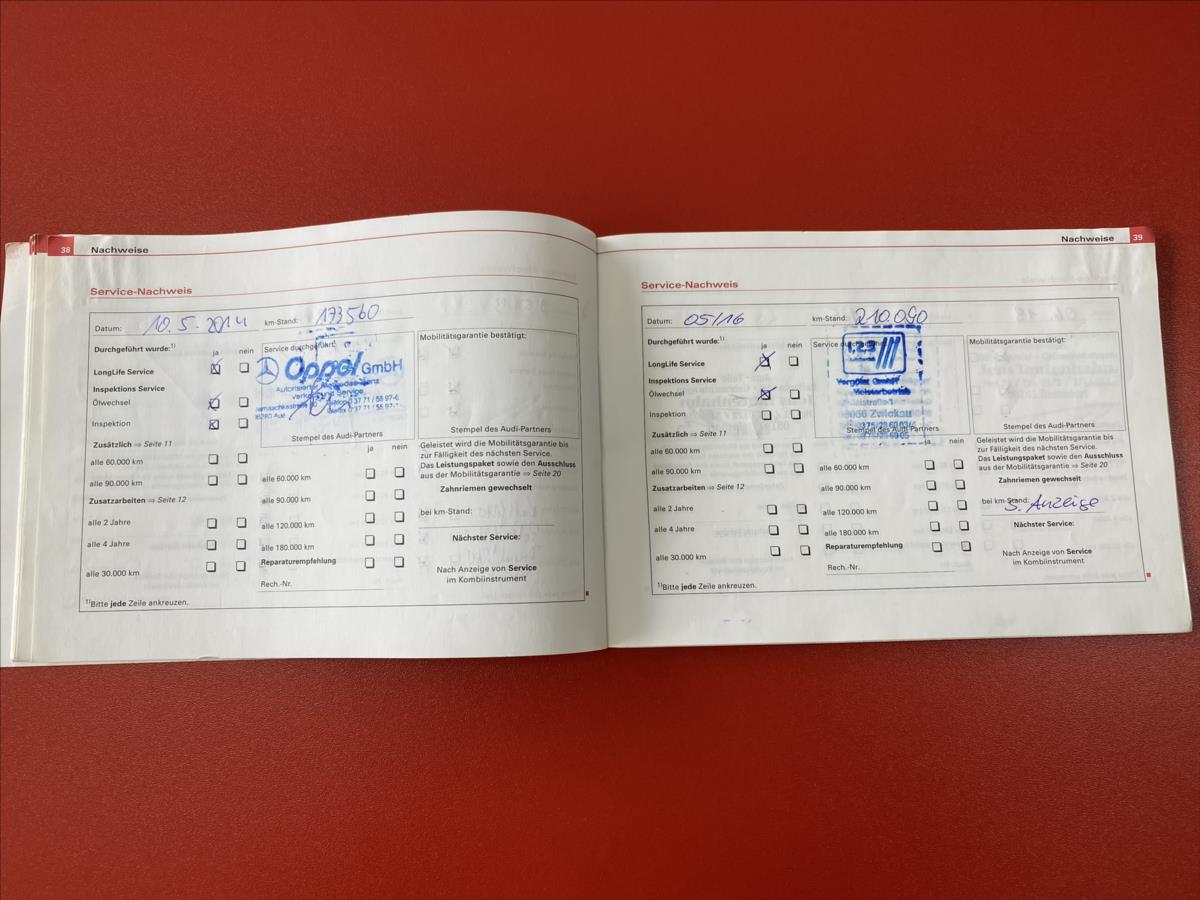 38 Nachweise
Service-Nachweis
Datum: 10.5.2014 km-Stand: 173560
Durchgeführt wurde:¹⁾ ja nein
LongLife Service
Inspektions Service
Ölwechsel
Inspektion
Zusätzlich ⇒ Seite 11
alle 60.000 km
alle 90.000 km
Zusatzarbeiten ⇒ Seite 12
alle 2 Jahre
alle 4 Jahre
alle 30.000 km
¹⁾Bitte jede Zeile ankreuzen.
Service durchgeführt:
Oppel GmbH
Verkauf und Service
Stempel des Audi-Partners
ja nein
alle 60.000 km
alle 90.000 km
alle 120.000 km
alle 180.000 km
Reparaturempfehlung
Rech.-Nr.
Mobilitätsgarantie bestätigt:
Stempel des Audi-Partners
Geleistet wird die Mobilitätsgarantie bis
zur Fälligkeit des nächsten Service.
Das Leistungspaket sowie den Ausschluss
aus der Mobilitätsgarantie ⇒ Seite 20
Zahnriemen gewechselt
bei km-Stand:
Nächster Service:
Nach Anzeige von Service
im Kombiinstrument
Nachweise 39
Service-Nachweis
Datum: 05/16 km-Stand: 210.090
Durchgeführt wurde:¹⁾ ja nein
LongLife Service
Inspektions Service
Ölwechsel
Inspektion
Zusätzlich ⇒ Seite 11
alle 60.000 km
alle 90.000 km
Zusatzarbeiten ⇒ Seite 12
alle 2 Jahre
alle 4 Jahre
alle 30.000 km
¹⁾Bitte jede Zeile ankreuzen.
Service durchgeführt:
1.2.3
Vergölst GmbH
Meisterbetrieb
Zwickau
Stempel des Audi-Partners
ja nein
alle 60.000 km
alle 90.000 km
alle 120.000 km
alle 180.000 km
Reparaturempfehlung
Rech.-Nr.
Mobilitätsgarantie bestätigt:
Stempel des Audi-Partners
Geleistet wird die Mobilitätsgarantie bis
zur Fälligkeit des nächsten Service.
Das Leistungspaket sowie den Ausschluss
aus der Mobilitätsgarantie ⇒ Seite 20
Zahnriemen gewechselt
bei km-Stand:
S. Anzeige
Nächster Service:
Nach Anzeige von Service
im Kombiinstrument